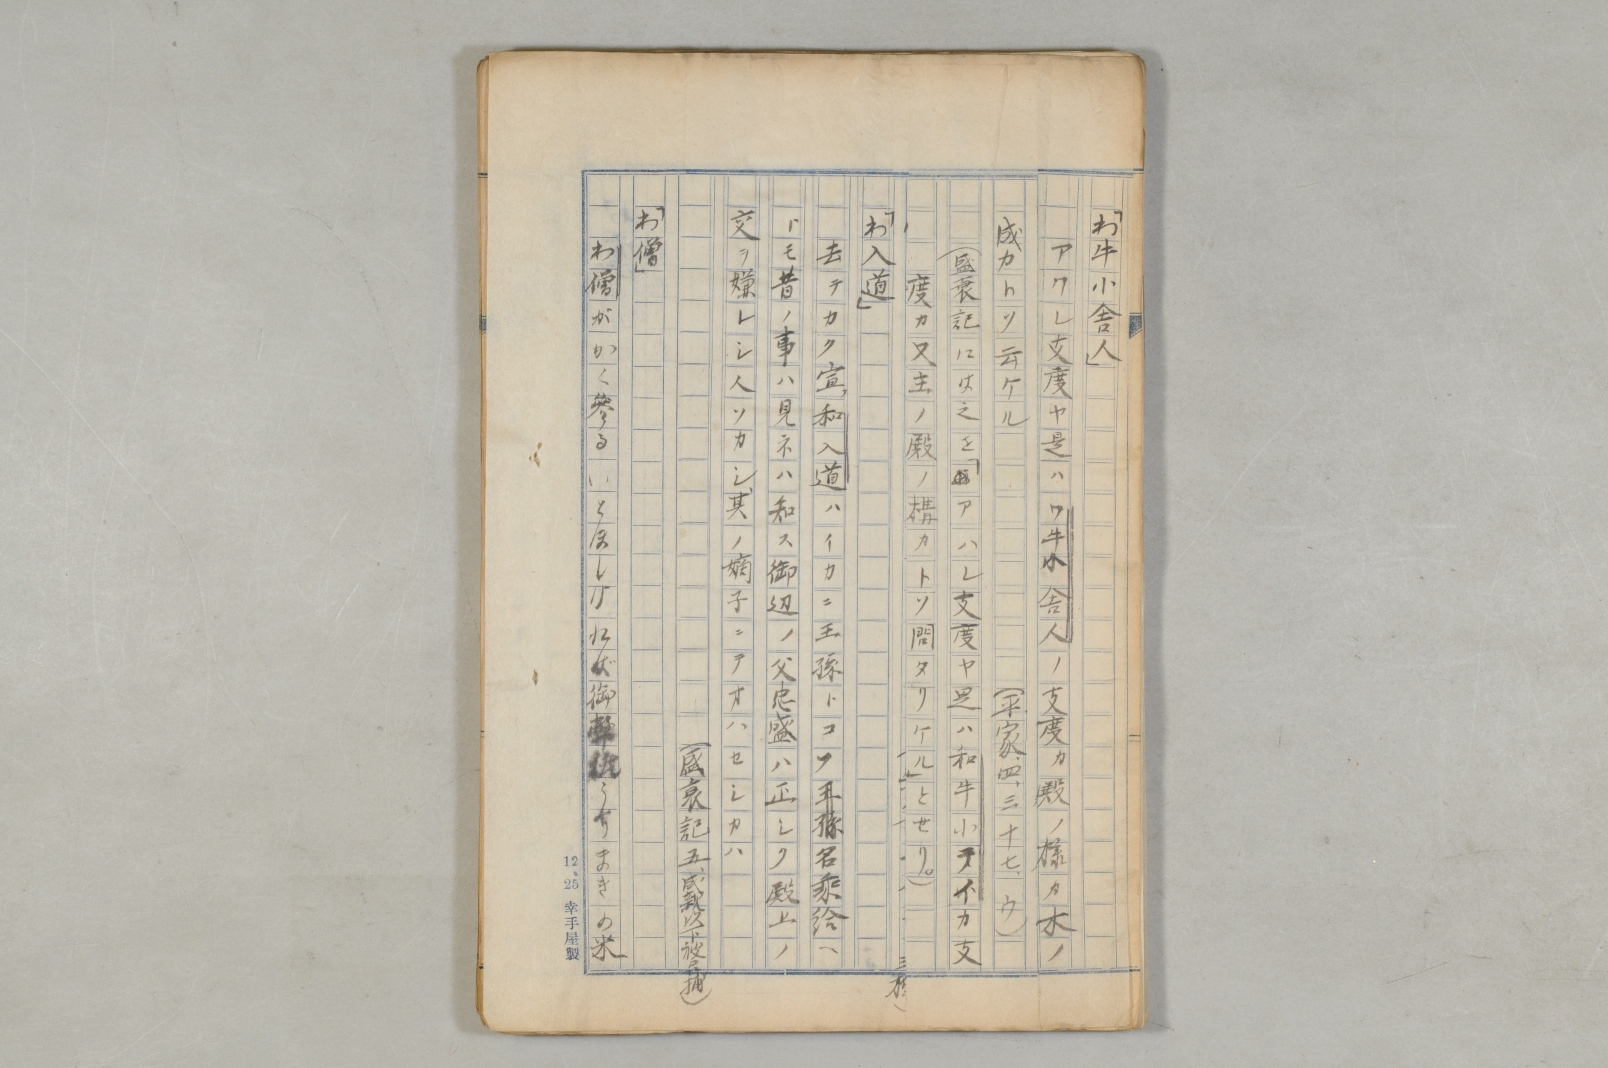 「わ牛小舎人」
アワレ支度ヤ是ハワ牛小舎人ノ支度カ殿ノ様カ木ノ
成カトソ云ケル　(平家、四、三十七、ウ)
(盛衰記には之を「アハレ支度ヤ是ハ和牛小テイカ支
度カ又主ノ殿ノ構カトソ問タリケル」とせり。)
「わ入道」
去テカク宣、和入道ハイカニ王孫トコソ王孫名乘給ヘ
ドモ昔ノ事ハ見ネハ知ス御辺ノ父忠盛ハ正シク殿上ノ
交ヲ嫌レシ人ソカシ、其ノ嫡子ニテオハセシカハ
(盛衰記五、成親以下被召捕)
「わ僧」
わ僧がかく參るいとほしければ御うちまきの米
12、25　幸手屋製